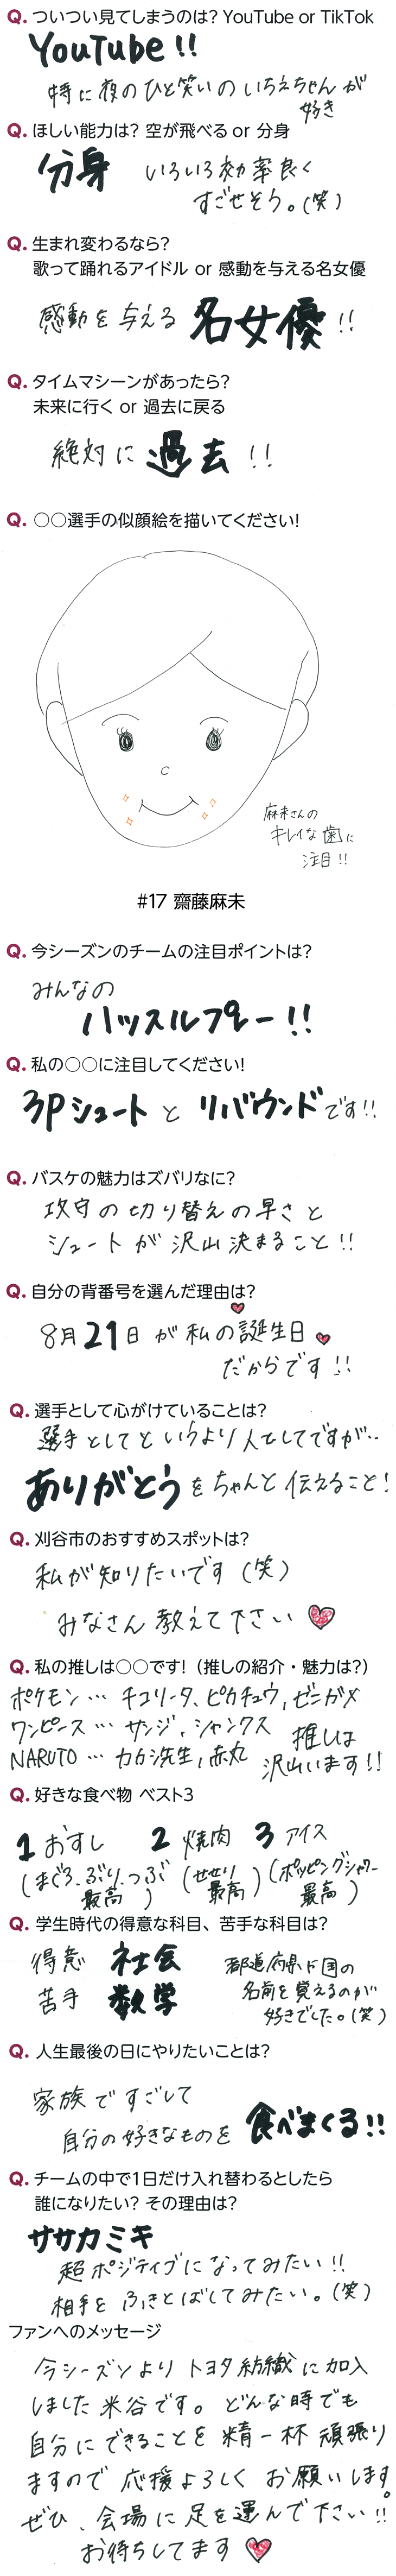 Q. ついつい見てしまうのは? YouTube or TikTok
YouTube!!
特に夜のひと笑いの いちえちゃんが
好き
Q. ほしい能力は? 空が飛べる or 分身
分身 いろいろ効率良く
すごせそう。(笑)
Q. 生まれ変わるなら?
歌って踊れるアイドル or 感動を与える名女優
感動を与える 名女優!!
Q. タイムマシーンがあったら?
未来に行く or 過去に戻る
絶対に 過去!!
Q. ○○選手の似顔絵を描いてください!
麻未さんの
キレイな歯に
注目!!
#17 齋藤麻未
Q. 今シーズンのチームの注目ポイントは?
みんなの
ハッスルプレー!!
Q. 私の○○に注目してください!
3Pシュート と リバウンドです!!
Q. バスケの魅力はズバリなに?
攻守の切り替えの早さと
シュートが沢山決まること!!
Q. 自分の背番号を選んだ理由は?
8月21日が私の誕生日
だからです!!
Q. 選手として心がけていることは?
選手としてというより人としてですが…
ありがとうをちゃんと伝えること!
Q. 刈谷市のおすすめスポットは?
私が知りたいです(笑)
みなさん教えて下さい♥
Q. 私の推しは○○です!(推しの紹介・魅力は?)
ポケモン… チコリータ、ピカチュウ、ゼニガメ
ワンピース… サンジ、シャンクス
NARUTO… カカシ先生、赤丸
推しは
沢山います!!
Q. 好きな食べ物 ベスト3
1 おすし 2 焼肉 3 アイス
(まぐろ、ぶり、つぶ 最高) (せせり 最高) (ポッピングシャワー 最高)
Q. 学生時代の得意な科目、苦手な科目は?
得意 社会
苦手 数学
都道府県や国の
名前を覚えるのが
好きでした。(笑)
Q. 人生最後の日にやりたいことは?
家族ですごして
自分の好きなものを 食べまくる!!
Q. チームの中で1日だけ入れ替わるとしたら
誰になりたい? その理由は?
ササカミキ
超ポジティブになってみたい!!
相手をふきとばしてみたい。(笑)
ファンへのメッセージ
今シーズンより トヨタ紡織に加入
しました米谷です。どんな時でも
自分にできることを精一杯頑張り
ますので応援よろしくお願いします。
ぜひ、会場に足を運んで下さい!!
お待ちしてます♥